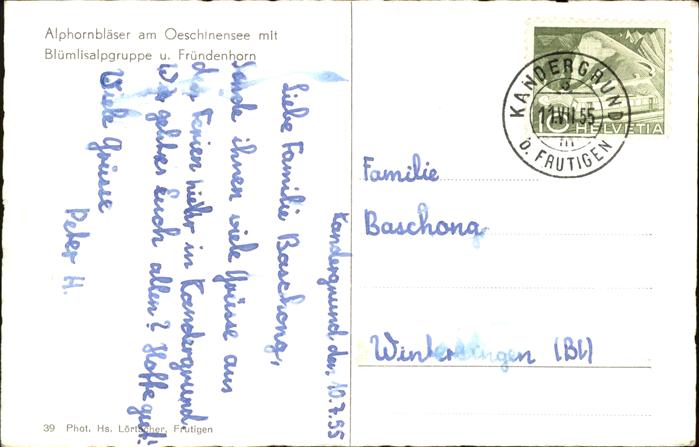 Alphornbläser am Oeschinensee mit
Blümlisalpgruppe u. Fründenhorn
Kandergrund den, 10.7.55
Liebe Familie Baschong,
Sende ihnen viele Grüsse aus
den Ferien hier in Kandergrund.
Wie geht es Euch allen? Hoffe gut!
Viele Grüsse
Peter H.
39 Phot. Hs. Lörtscher, Frutigen
10 HELVETIA
KANDERGRUND
11.VII.55
b. FRUTIGEN
Familie
Baschong
Wintersingen (BL)